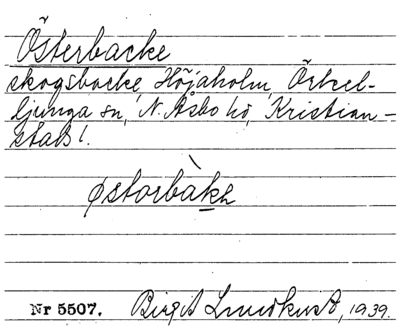 Österbacke
skogsbacke, Höjaholm, Örkel-
ljunga sn, N. Åsbo hd, Kristian-
stads l.
østorbàkə
Nr 5507. Birgit Lundkvist, 1939.